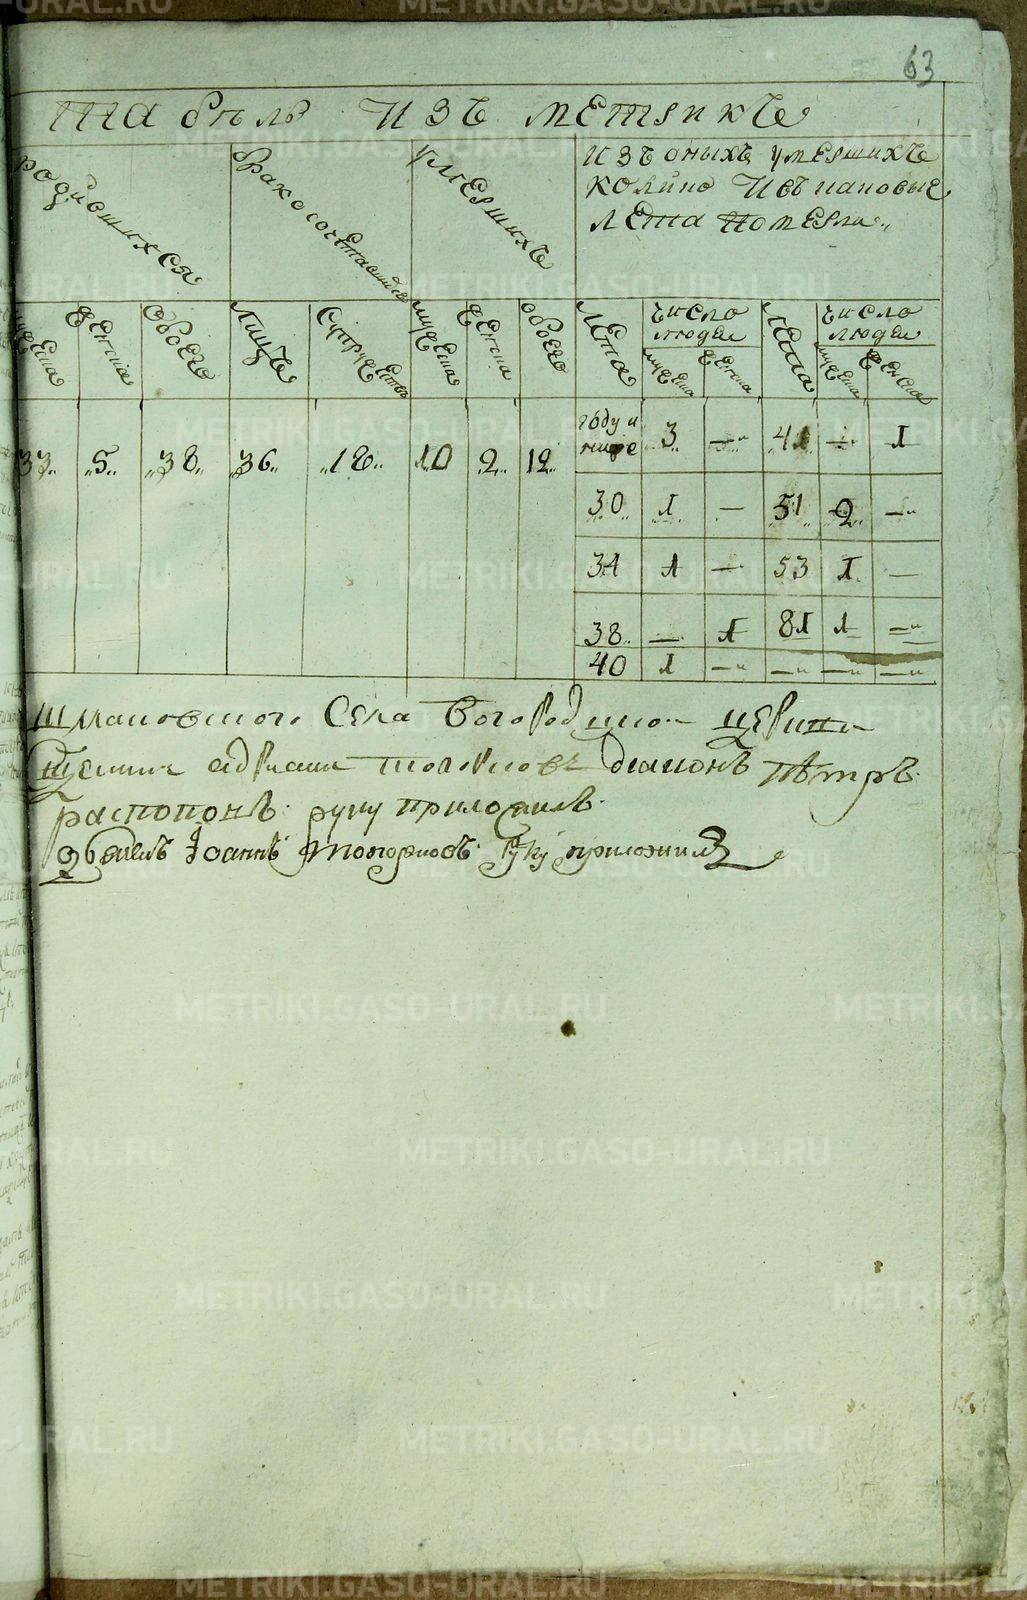 63
табель изъ метрикъ
родившихся бракосочетавшихся умершихъ изъ оныхъ умершихъ
колико и въ каковые
лета померли
мужеска женска обоего лицъ супружествъ мужеска женска обоего лета число людей лета число людей
мужеска женска мужеска женска
году и ниже 3 — 41 — 1
33 5 38 36 18 10 2 12
30 1 — 51 2 —
34 1 — 53 1 —
38 — 1 81 1 —
40 1 — — — —
Села Богородицкой церкви
діаконъ Пѣтръ
распоповъ руку приложилъ
Іоаннъ Топорковъ руку приложилъ
METRIKI.GASO-URAL.RU